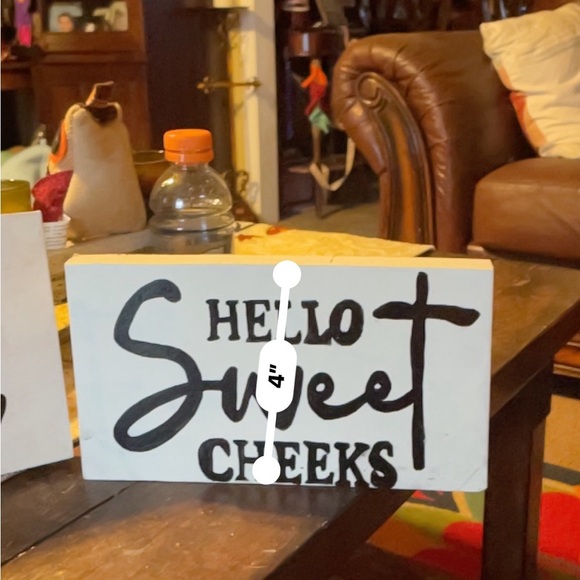 HELLO
Sweet
CHEEKS
4"